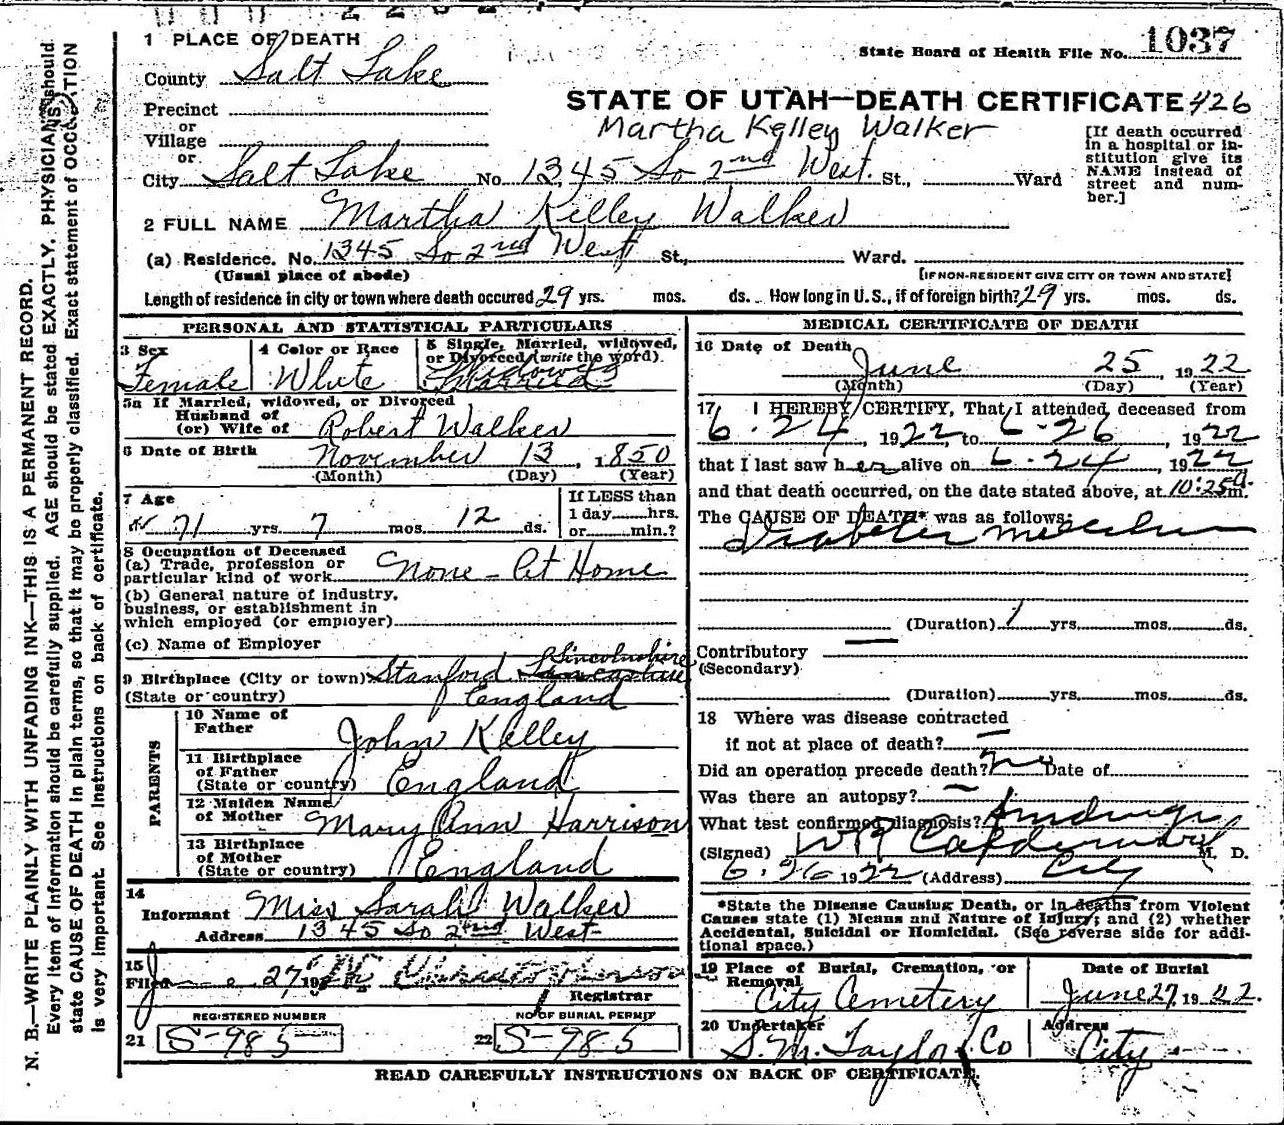 1 PLACE OF DEATH
State Board of Health File No. 1037
County Salt Lake
STATE OF UTAH—DEATH CERTIFICATE 426
Precinct
or
Village
or
Martha Kelley Walker
[If death occurred in a hospital or institution give its NAME instead of street and number.]
City Salt Lake No. 1345 So 2nd West. St., Ward
2 FULL NAME Martha Kelley Walker
(a) Residence. No. 1345 So 2nd West St., Ward.
(Usual place of abode) [IF NON-RESIDENT GIVE CITY OR TOWN AND STATE]
Length of residence in city or town where death occured 29 yrs. mos. ds. How long in U.S., if of foreign birth? 29 yrs. mos. ds.
PERSONAL AND STATISTICAL PARTICULARS
3 Sex
Female
4 Color or Race
White
5 Single, Married, widowed,
or Divorced (write the word).
Widowed
Married
5a If Married, widowed, or Divorced
Husband of
(or) Wife of Robert Walker
6 Date of Birth November 13, 1850
(Month) (Day) (Year)
7 Age
71 yrs. 7 mos. 12 ds.
If LESS than
1 day hrs.
or min.?
8 Occupation of Deceased
(a) Trade, profession or
particular kind of work None - At Home
(b) General nature of industry,
business, or establishment in
which employed (or employer)
(c) Name of Employer
Lincolnshire
9 Birthplace (City or town) Stanford Lancashire
(State or country) England
PARENTS
10 Name of
Father John Kelley
11 Birthplace
of Father
(State or country) England
12 Maiden Name
of Mother Mary Ann Harrison
13 Birthplace
of Mother
(State or country) England
14
Informant Miss Sarah Walker
Address 1345 So 2nd West
15
Filed June 27, 19
Registrar
REGISTERED NUMBER NO OF BURIAL PERMIT
21 S-985 22 S-985
MEDICAL CERTIFICATE OF DEATH
16 Date of Death
June 25, 1922
(Month) (Day) (Year)
17 I HEREBY CERTIFY, That I attended deceased from
6-24, 1922 to 6-26, 1922
that I last saw her alive on 6-24, 1922
and that death occurred, on the date stated above, at 10:25 a.m.
The CAUSE OF DEATH* was as follows:
Diabetes Mellitus
(Duration) 1 yrs. mos. ds.
Contributory —
(Secondary)
(Duration) yrs. mos. ds.
18 Where was disease contracted
if not at place of death? —
Did an operation precede death? no Date of
Was there an autopsy? —
What test confirmed diagnosis?
(Signed) W R Calderwood M. D.
6-26 1922 (Address) City
*State the Disease Causing Death, or in deaths from Violent
Causes state (1) Means and Nature of Injury; and (2) whether
Accidental, Suicidal or Homicidal. (See reverse side for addi-
tional space.)
19 Place of Burial, Cremation, or
Removal
City Cemetery
Date of Burial
June 27, 1922.
20 Undertaker
S. M. Taylor & Co
Address
City
READ CAREFULLY INSTRUCTIONS ON BACK OF CERTIFICATE.
N. B.—WRITE PLAINLY WITH UNFADING INK—THIS IS A PERMANENT RECORD.
Every item of information should be carefully supplied. AGE should be stated EXACTLY. PHYSICIANS should
state CAUSE OF DEATH in plain terms, so that it may be properly classified. Exact statement of OCCUPATION
is very important. See instructions on back of certificate.